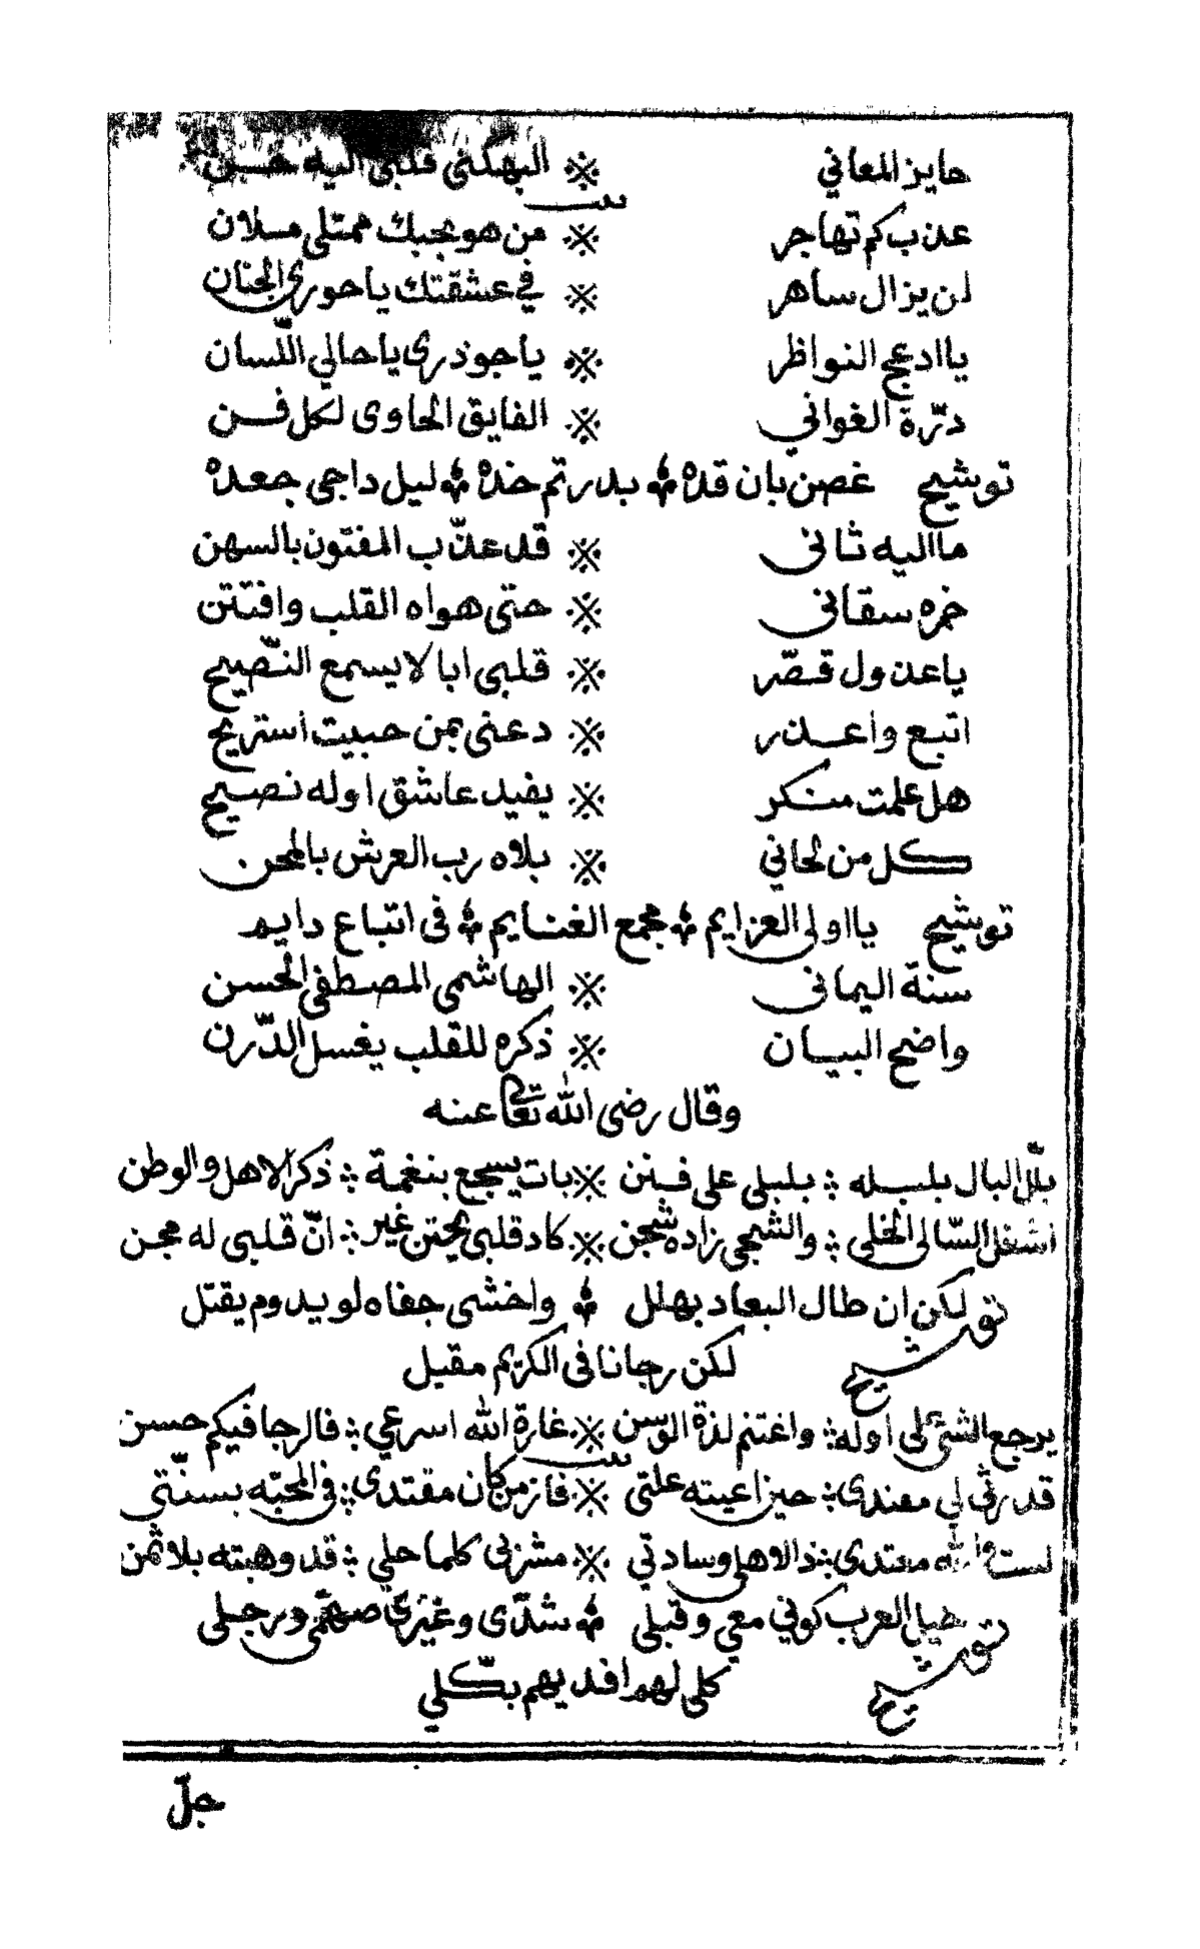 حايز المعاني ※ البهكني قلبي اليه حسن
بيت
عذب كم تهاجر ※ من هو بحبك ممتلي ملان
لن يزال ساهر ※ في عشقتك يا حوري الجنان
يا ادعج النواظر ※ يا جوذري يا حالي اللّسان
درّة الغواني ※ الفايق الحاوى لكل فن
توشيح غصن بان قده بدر تم خده ليل داجي جعده
ما اليه ثاني ※ قد عذّب المفتون بالسهن
خمره سقاني ※ حتى هواه القلب وافتتن
يا عذول قصّر ※ قلبي ابا لا يسمع النّصيح
اتبع واعذر ※ دعني بمن حبيت استريح
هل علمت منكر ※ يفيد عاشق اوله نصيح
كل من لحاني ※ بلاه رب العرش بالمحن
توشيح يا اولى العزايم مجمع الغنايم فى اتباع دايم
سنة اليماني ※ الهاشمي المصطفى الحسن
واضح البيان ※ ذكره للقلب يغسل الدّرن
وقال رضى الله تعالى عنه
بلّل البال بلبله ؞ بلبلي على فنن ※ بات يسجع بنغمة ؞ ذكر الاهل والوطن
اشغل السّالى الخلي ؞ والشجي زاده شجن ※ كاد قلبي يحتن غير ؞ انّ قلبي له مجن
توشيح لكن ان طال البعاد بهلل واخشى جفاه لو يدوم يقتل
لكن رجانا فى الكريم مقبل
يرجع الشئ على اوله ؞ واغتنم لذة الوسن ※ غارة الله اسرعي ؞ فالرجا فيكم حسن
بيت
قد رثى لي مفندى ؞ حين اعيته علتى ※ فاز من كان مقتدى ؞ في المحبّه بسنّتي
لست والله معتدى ؞ ذا لاهلي وسادتي ※ مشربى كلما حلي ؞ قد وهبته بلا ثمن
توشيح خيل العرب كوني معي وقبلي شدّى وغيرى صهتمى ورجلى
كلى لهم افديهم بكلّي
جلّ